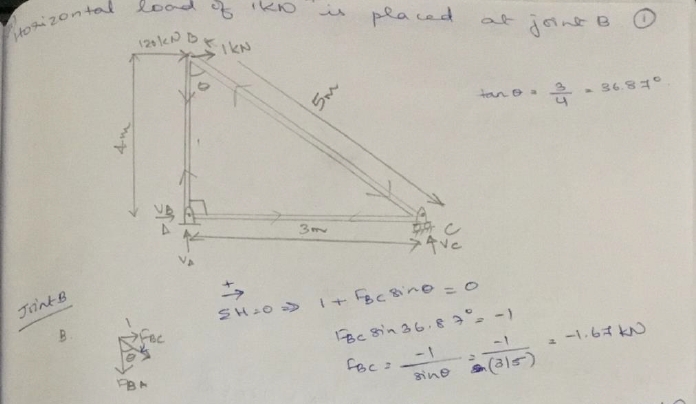 Horizontal load of 1KN is placed at joint B ①
120kN B 1KN
θ
5m
tan θ = 3/4 = 36.87°
4m
3m
C
VC
VA
Joint B
+→
ΣH=0 ⇒ 1 + FBC sinθ = 0
B
1
FBC
θ
FBA
FBC sin 36.87° = -1
FBC = -1/sinθ = -1/(3/5) = -1.67 kN